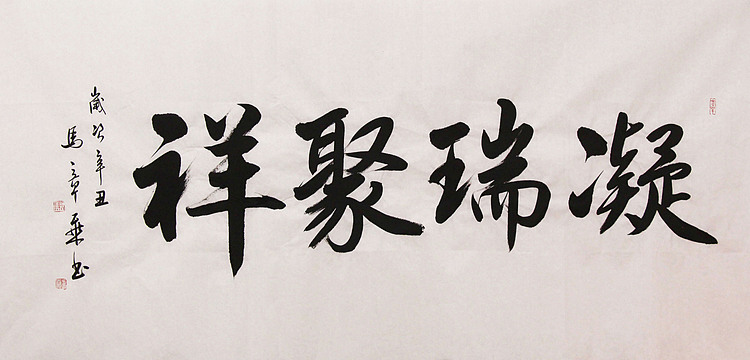 凝瑞聚祥
歲次辛丑
馬章乘書